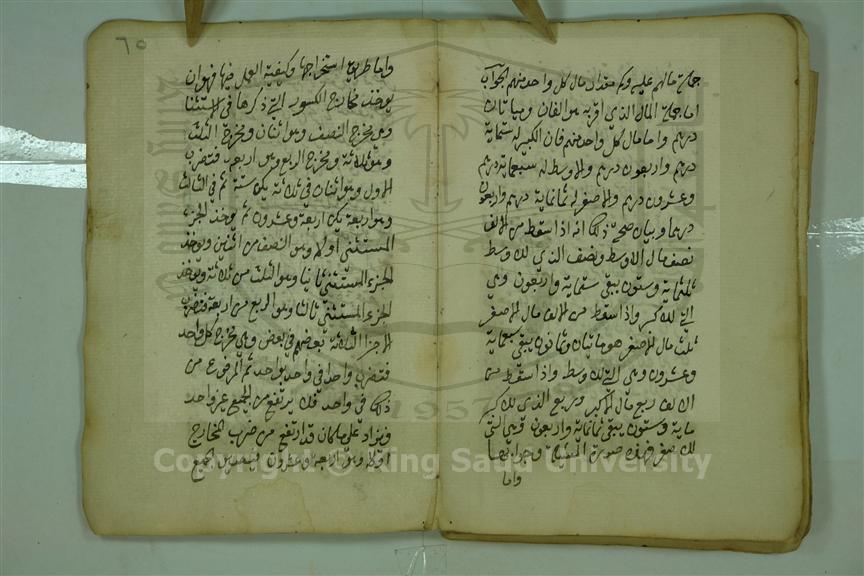 جملة مالهم عليه وكم مقدار مال كل واحد منهم الجواب
اما جملة المال الذي اقر به هو الفان ومايتان
درهم واما مال كل واحد منهم فان الكبير له ستماية
درهم واربعون درهم والاوسط له سبعماية درهم
وعشرون درهم والاصغر له ثمانماية درهم واربعون
درهما وبيان صحة ذلك انه اذا سقط من الالف
نصف مال الاوسط ونصف الذي للاوسط
ثلثماية وستون يبقى ستماية واربعون وهي
التي للاكبر واذا سقط من الالف مال الاصغر
ثلث مال الاصغر هو مايتان وثمانون يبقى سبعماية
وعشرون وهي التي للاوسط واذا سقط من
الالف ربع مال الاكبر وربع الذي للاكبر
ماية وستون يبقى ثمانماية واربعون وهي التي
للاصغر فهذه صورة المسئلة وجوابها
واما
٦٥
واما طريق استخراجها وكيفية العمل فيها فهو ان
يوخذ مخارج الكسور التي ذكرها في الاستثنا
وهي مخرج النصف وهو اثنان ومخرج الثلث
وهو ثلاثة ومخرج الربع وهو اربعة فتضرب
الاول وهو اثنان في ثلاثة يكن ستة ثم في الثالث
وهو اربعة يكن اربعة وعشرون ثم يوخذ الجزء
المستثنى أولا وهو النصف من اثنين ويوخذ
الجزء المستثنى ثانيا وهو الثلث من ثلاثة ويوخذ
الجزء المستثنى ثالثا وهو الربع من اربعة فتضرب
الاجزا الثلاثة بعضهم في بعض وهي مخرج كل واحد
فتضرب واحد في واحد بواحد ثم المرفوع من
ذلك في واحد فلا يرتفع من الجميع غير واحد
فيزاد على ما كان قد ارتفع من ضرب المخارج
اولا وهو اربعة وعشرون فيصير الجميع
Copyright © King Saud University
1957